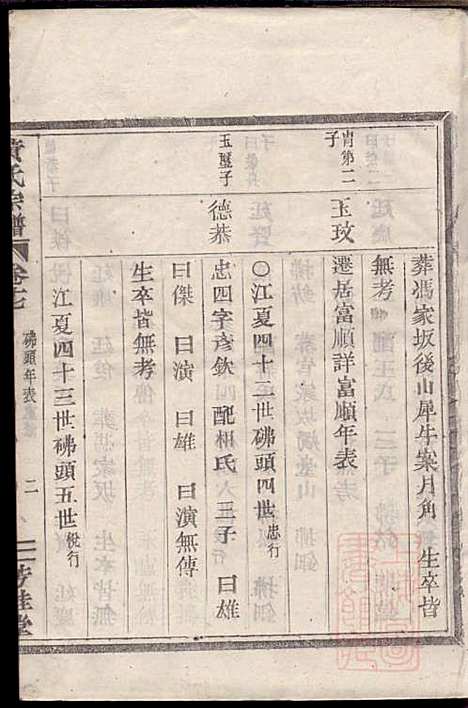 葬馮家坂後山犀牛案月角　生卒皆
無考
肖第二子　玉玟　遷居富順詳富順年表
〇江夏四十二世砩頭四世忠行
玉璽子　德恭　忠四字彥欽　配相氏　三子　曰雄
曰傑　曰演　曰雄　曰演無傳
生卒皆無考
江夏四十三世砩頭五世悅行
黃氏宗譜　卷七　砩頭年表　二